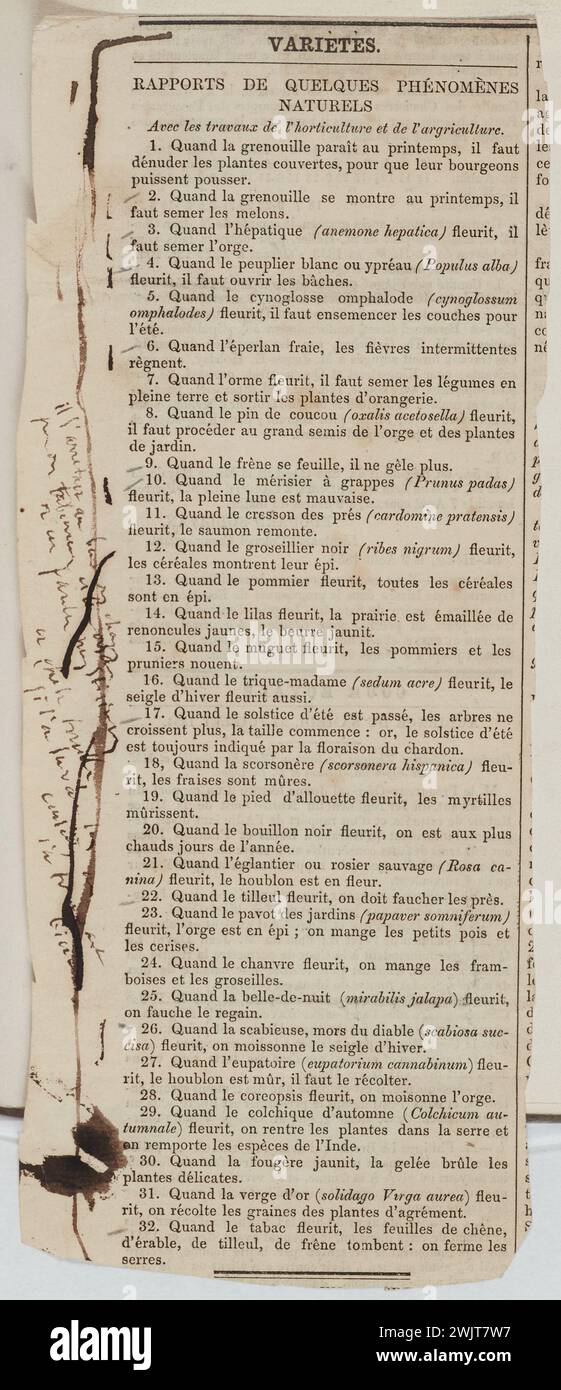 VARIÈTÈS.
RAPPORTS DE QUELQUES PHÉNOMÈNES
NATURELS
Avec les travaux de l'horticulture et de l'argriculture.
1. Quand la grenouille paraît au printemps, il faut
dénuder les plantes couvertes, pour que leur bourgeons
puissent pousser.
2. Quand la grenouille se montre au printemps, il
faut semer les melons.
3. Quand l'hépatique (anemone hepatica) fleurit, il
faut semer l'orge.
4. Quand le peuplier blanc ou ypréau (Populus alba)
fleurit, il faut ouvrir les bâches.
5. Quand le cynoglosse omphalode (cynoglossum
omphalodes) fleurit, il faut ensemencer les couches pour
l'été.
6. Quand l'éperlan fraie, les fièvres intermittentes
règnent.
7. Quand l'orme fleurit, il faut semer les légumes en
pleine terre et sortir les plantes d'orangerie.
8. Quand le pin de coucou (oxalis acetosella) fleurit,
il faut procéder au grand semis de l'orge et des plantes
de jardin.
9. Quand le frêne se feuille, il ne gèle plus.
10. Quand le mérisier à grappes (Prunus padas)
fleurit, la pleine lune est mauvaise.
11. Quand le cresson des prés (cardomine pratensis)
fleurit, le saumon remonte.
12. Quand le groseillier noir (ribes nigrum) fleurit,
les céréales montrent leur épi.
13. Quand le pommier fleurit, toutes les céréales
sont en épi.
14. Quand le lilas fleurit, la prairie est émaillée de
renoncules jaunes, le beurre jaunit.
15. Quand le muguet fleurit, les pommiers et les
pruniers nouent.
16. Quand le trique-madame (sedum acre) fleurit, le
seigle d'hiver fleurit aussi.
17. Quand le solstice d'été est passé, les arbres ne
croissent plus, la taille commence : or, le solstice d'été
est toujours indiqué par la floraison du chardon.
18, Quand la scorsonère (scorsonera hispanica) fleu-
rit, les fraises sont mûres.
19. Quand le pied d'allouette fleurit, les myrtilles
mûrissent.
20. Quand le bouillon noir fleurit, on est aux plus
chauds jours de l'année.
21. Quand l'églantier ou rosier sauvage (Rosa ca-
nina) fleurit, le houblon est en fleur.
22. Quand le tilleul fleurit, on doit faucher les près.
23. Quand le pavot des jardins (papaver somniferum)
fleurit, l'orge est en épi ; on mange les petits pois et
les cerises.
24. Quand le chanvre fleurit, on mange les fram-
boises et les groseilles.
25. Quand la belle-de-nuit (mirabilis jalapa) fleurit,
on fauche le regain.
26. Quand la scabieuse, mors du diable (scabiosa suc-
cisa) fleurit, on moissonne le seigle d'hiver.
27. Quand l'eupatoire (eupatorium cannabinum) fleu-
rit, le houblon est mûr, il faut le récolter.
28. Quand le coreopsis fleurit, on moisonne l'orge.
29. Quand le colchique d'automne (Colchicum au-
tumnale) fleurit, on rentre les plantes dans la serre et
on remporte les espèces de l'Inde.
30. Quand la fougère jaunit, la gelée brûle les
plantes délicates.
31. Quand la verge d'or (solidago Virga aurea) fleu-
rit, on récolte les graines des plantes d'agrément.
32. Quand le tabac fleurit, les feuilles de chêne,
d'érable, de tilleul, de frêne tombent : on ferme les
serres.
alamy
alamy
Image ID: 2WJT7W7
www.alamy.com